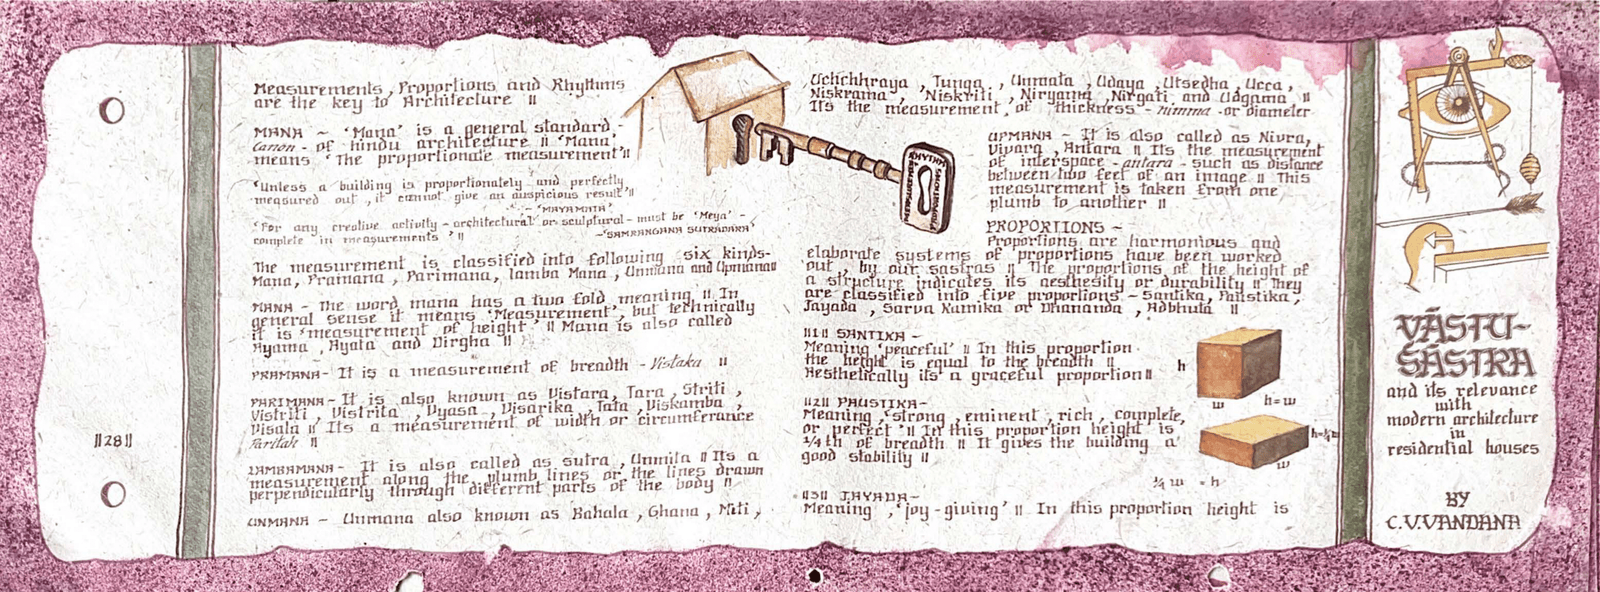 Measurements, Proportions and Rhythms
are the key to Architecture ॥
MANA ~ 'Mana' is a general standard,-
Canon - of hindu architecture ॥ 'Mana'
means 'The proportionate measurement'॥
'Unless a building is proportionately and perfectly
measured out, it cannot give an auspicious result'॥
~ 'MAYAMATA'
'For any creative activity - architectural or sculptural - must be 'Meya' -
complete in measurements' ॥
~SAMRANGANA SUTRADARA
The measurement is classified into following six kinds-
Mana, Pramana, Parimana, lamba Mana, Unmana and Upmana॥
MANA ~ The word mana has a two fold meaning ॥ In
general sense it means 'Measurement', but technically
it is 'measurement of height' ॥ Mana is also called
Ayama, Ayata and Dirgha ॥
PRAMANA- It is a measurement of breadth - Vistaka ॥
PARIMANA- It is also known as Vistara, Tara, Striti,
Vistriti, Vistrita, Vyasa, Visarika, Tata, Viskamba,
Visala ॥ Its a measurement of width or circumferance
Paritah ॥
LAMBAMANA- It is also called as sutra, Unmita ॥ Its a
measurement along the plumb lines or the lines drawn
perpendicularly through different parts of the body ॥
UNMANA ~ Unmana also known as Bahala, Ghana, Miti,
॥28॥
RHYTHM
Uchchhraya, Tunga, Unnata, Udaya, Utsedha, Ucca,
Niskrama, Niskriti, Niryama, Nirgati and Udgama ॥
It's the measurement of thickness - nimma - or Diameter
UPMANA ~ It is also called as Nivra,
Vivara, Antara ॥ Its the measurement
of interspace - antara - such as distance
between two feet of an image ॥ This
measurement is taken from one
plumb to another ॥
PROPORTIONS ~
Proportions are harmonious and
elaborate systems of proportions have been worked
out, by our sastras ॥ The proportions of the height of
a structure indicates its aesthesity or durability ॥ They
are classified into five proportions - Santika, Paustika,
Jayada, Sarva Kamika or Dhananda, Adbhuta ॥
॥1॥ SANTIKA ~
Meaning 'peaceful' ॥ In this proportion
the height is equal to the breadth ॥
Aesthetically its a graceful proportion॥
h
w
h=w
॥2॥ PAUSTIKA-
Meaning, 'strong, eminent, rich, complete,
or perfect' ॥ In this proportion height is
¼th of breadth ॥ It gives the building a
good stability ॥
h=¼w
w
¼ w = h
॥3॥ JAYADA-
Meaning, 'joy-giving' ॥ In this proportion height is
VĀSTU-
SĀSTRA
and its relevance
with
modern architecture
in
residential houses
BY
C.V.VANDANA